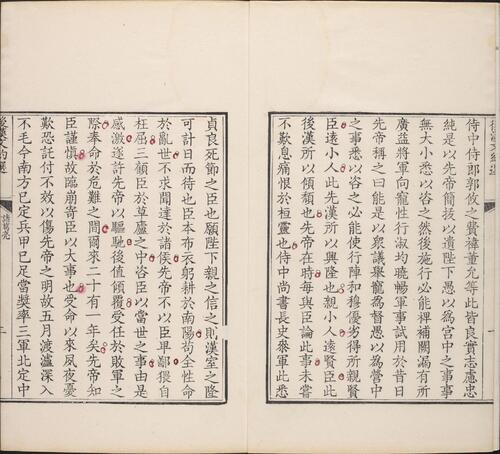 侍中侍郎郭攸之費禕董允等此皆良實志慮忠
純是以先帝簡拔以遺陛下愚以為宮中之事事
無大小悉以咨之然後施行必能裨補闕漏有所
廣益將軍向寵性行淑均曉暢軍事試用於昔日
先帝稱之曰能是以眾議舉寵為督愚以為營中
之事悉以咨之必能使行陣和穆優劣得所親賢
臣遠小人此先漢所以興隆也親小人遠賢臣此
後漢所以傾頹也先帝在時每與臣論此事未嘗
不歎息痛恨於桓靈也侍中尚書長史參軍此悉
貞良死節之臣也願陛下親之信之則漢室之隆
可計日而待也臣本布衣躬耕於南陽苟全性命
於亂世不求聞達於諸侯先帝不以臣卑鄙猥自
枉屈三顧臣於草廬之中咨臣以當世之事由是
感激遂許先帝以驅馳後值傾覆受任於敗軍之
際奉命於危難之間爾來二十有一年矣先帝知
臣謹慎故臨崩寄臣以大事也受命以來夙夜憂
歎恐託付不效以傷先帝之明故五月渡瀘深入
不毛今南方已定兵甲已足當獎率三軍北定中
諸葛亮